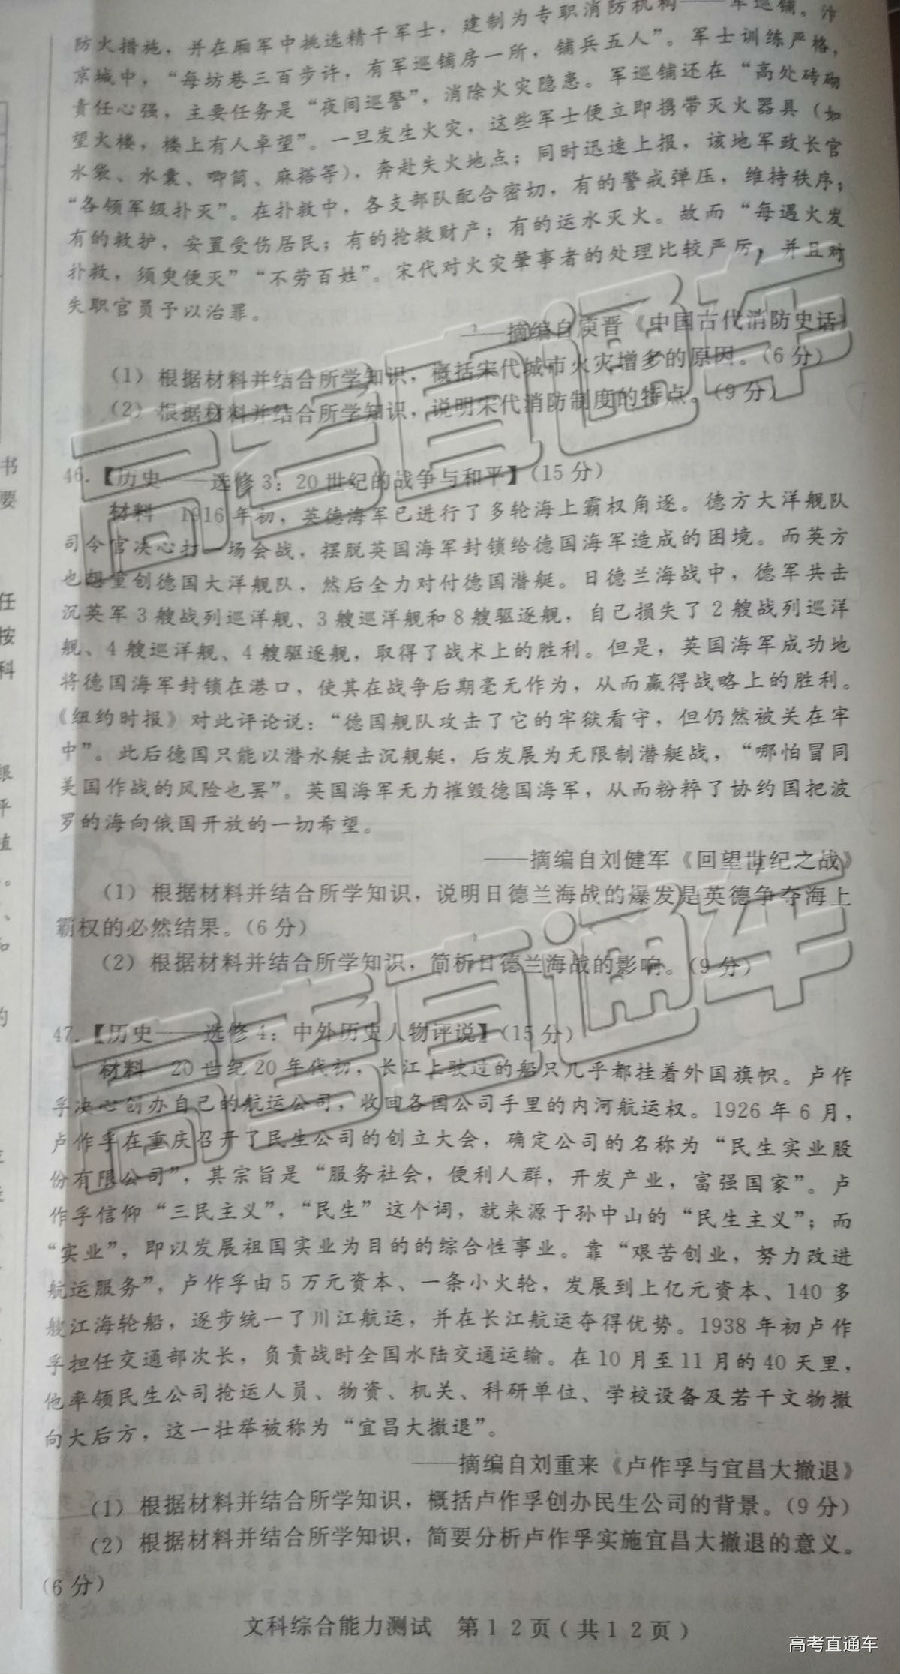 防火措施，并在厢军中挑选精干军士，建制为专职消防机构——军巡铺。汴
京城中，“每坊巷三百步许，有军巡铺房一所，铺兵五人”。军士训练严格，
责任心强，主要任务是“夜间巡警”，消除火灾隐患。军巡铺还在“高处砖砌
望火楼，楼上有人卓望”。一旦发生火灾，这些军士便立即携带灭火器具（如
水袋、水囊、唧筒、麻搭等），奔赴失火地点；同时迅速上报，该地军政长官
“各领军级扑灭”。在扑救中，各支部队配合密切，有的警戒弹压，维持秩序；
有的救护，安置受伤居民；有的抢救财产；有的运水灭火。故而“每遇火发
扑救，须臾便灭”“不劳百姓”。宋代对火灾肇事者的处理比较严厉，并且对
失职官员予以治罪。
——摘编自 晋《中国古代消防史话》
（1）根据材料并结合所学知识，概括宋代城市火灾增多的原因。（6分）
（2）根据材料并结合所学知识，说明宋代消防制度的特点。（9分）
46.【历史——选修3：20世纪的战争与和平】（15分）
材料 1916年初，英德海军已进行了多轮海上霸权角逐。德方大洋舰队
司令官决心打一场会战，摆脱英国海军封锁给德国海军造成的困境。而英方
也想重创德国大洋舰队，然后全力对付德国潜艇。日德兰海战中，德军共击
沉英军3艘战列巡洋舰、3艘巡洋舰和8艘驱逐舰，自己损失了2艘战列巡洋
舰、4艘巡洋舰、4艘驱逐舰，取得了战术上的胜利。但是，英国海军成功地
将德国海军封锁在港口，使其在战争后期毫无作为，从而赢得战略上的胜利。
《纽约时报》对此评论说：“德国舰队攻击了它的牢狱看守，但仍然被关在牢
中”。此后德国只能以潜水艇击沉舰艇，后发展为无限制潜艇战，“哪怕冒同
美国作战的风险也罢”。英国海军无力摧毁德国海军，从而粉粹了协约国把波
罗的海向俄国开放的一切希望。
——摘编自刘健军《回望世纪之战》
（1）根据材料并结合所学知识，说明日德兰海战的爆发是英德争夺海上
霸权的必然结果。（6分）
（2）根据材料并结合所学知识，简析日德兰海战的影响。（9分）
47.【历史——选修4：中外历史人物评说】（15分）
材料 20世纪20年代初，长江上驶过的船只几乎都挂着外国旗帜。卢作
孚决心创办自己的航运公司，收回各国公司手里的内河航运权。1926年6月，
卢作孚在重庆召开了民生公司的创立大会，确定公司的名称为“民生实业股
份有限公司”，其宗旨是“服务社会，便利人群，开发产业，富强国家”。卢
作孚信仰“三民主义”，“民生”这个词，就来源于孙中山的“民生主义”；而
“实业”，即以发展祖国实业为目的的综合性事业。靠“艰苦创业，努力改进
航运服务”，卢作孚由5万元资本、一条小火轮，发展到上亿元资本、140多
艘江海轮船，逐步统一了川江航运，并在长江航运夺得优势。1938年初卢作
孚担任交通部次长，负责战时全国水陆交通运输。在10月至11月的40天里，
他率领民生公司抢运人员、物资、机关、科研单位、学校设备及若干文物撤
向大后方，这一壮举被称为“宜昌大撤退”。
——摘编自刘重来《卢作孚与宜昌大撤退》
（1）根据材料并结合所学知识，概括卢作孚创办民生公司的背景。（9分）
（2）根据材料并结合所学知识，简要分析卢作孚实施宜昌大撤退的意义。
（6分）
文科综合能力测试 第12页（共12页）
高考直通车
高考直通车
高考直通车